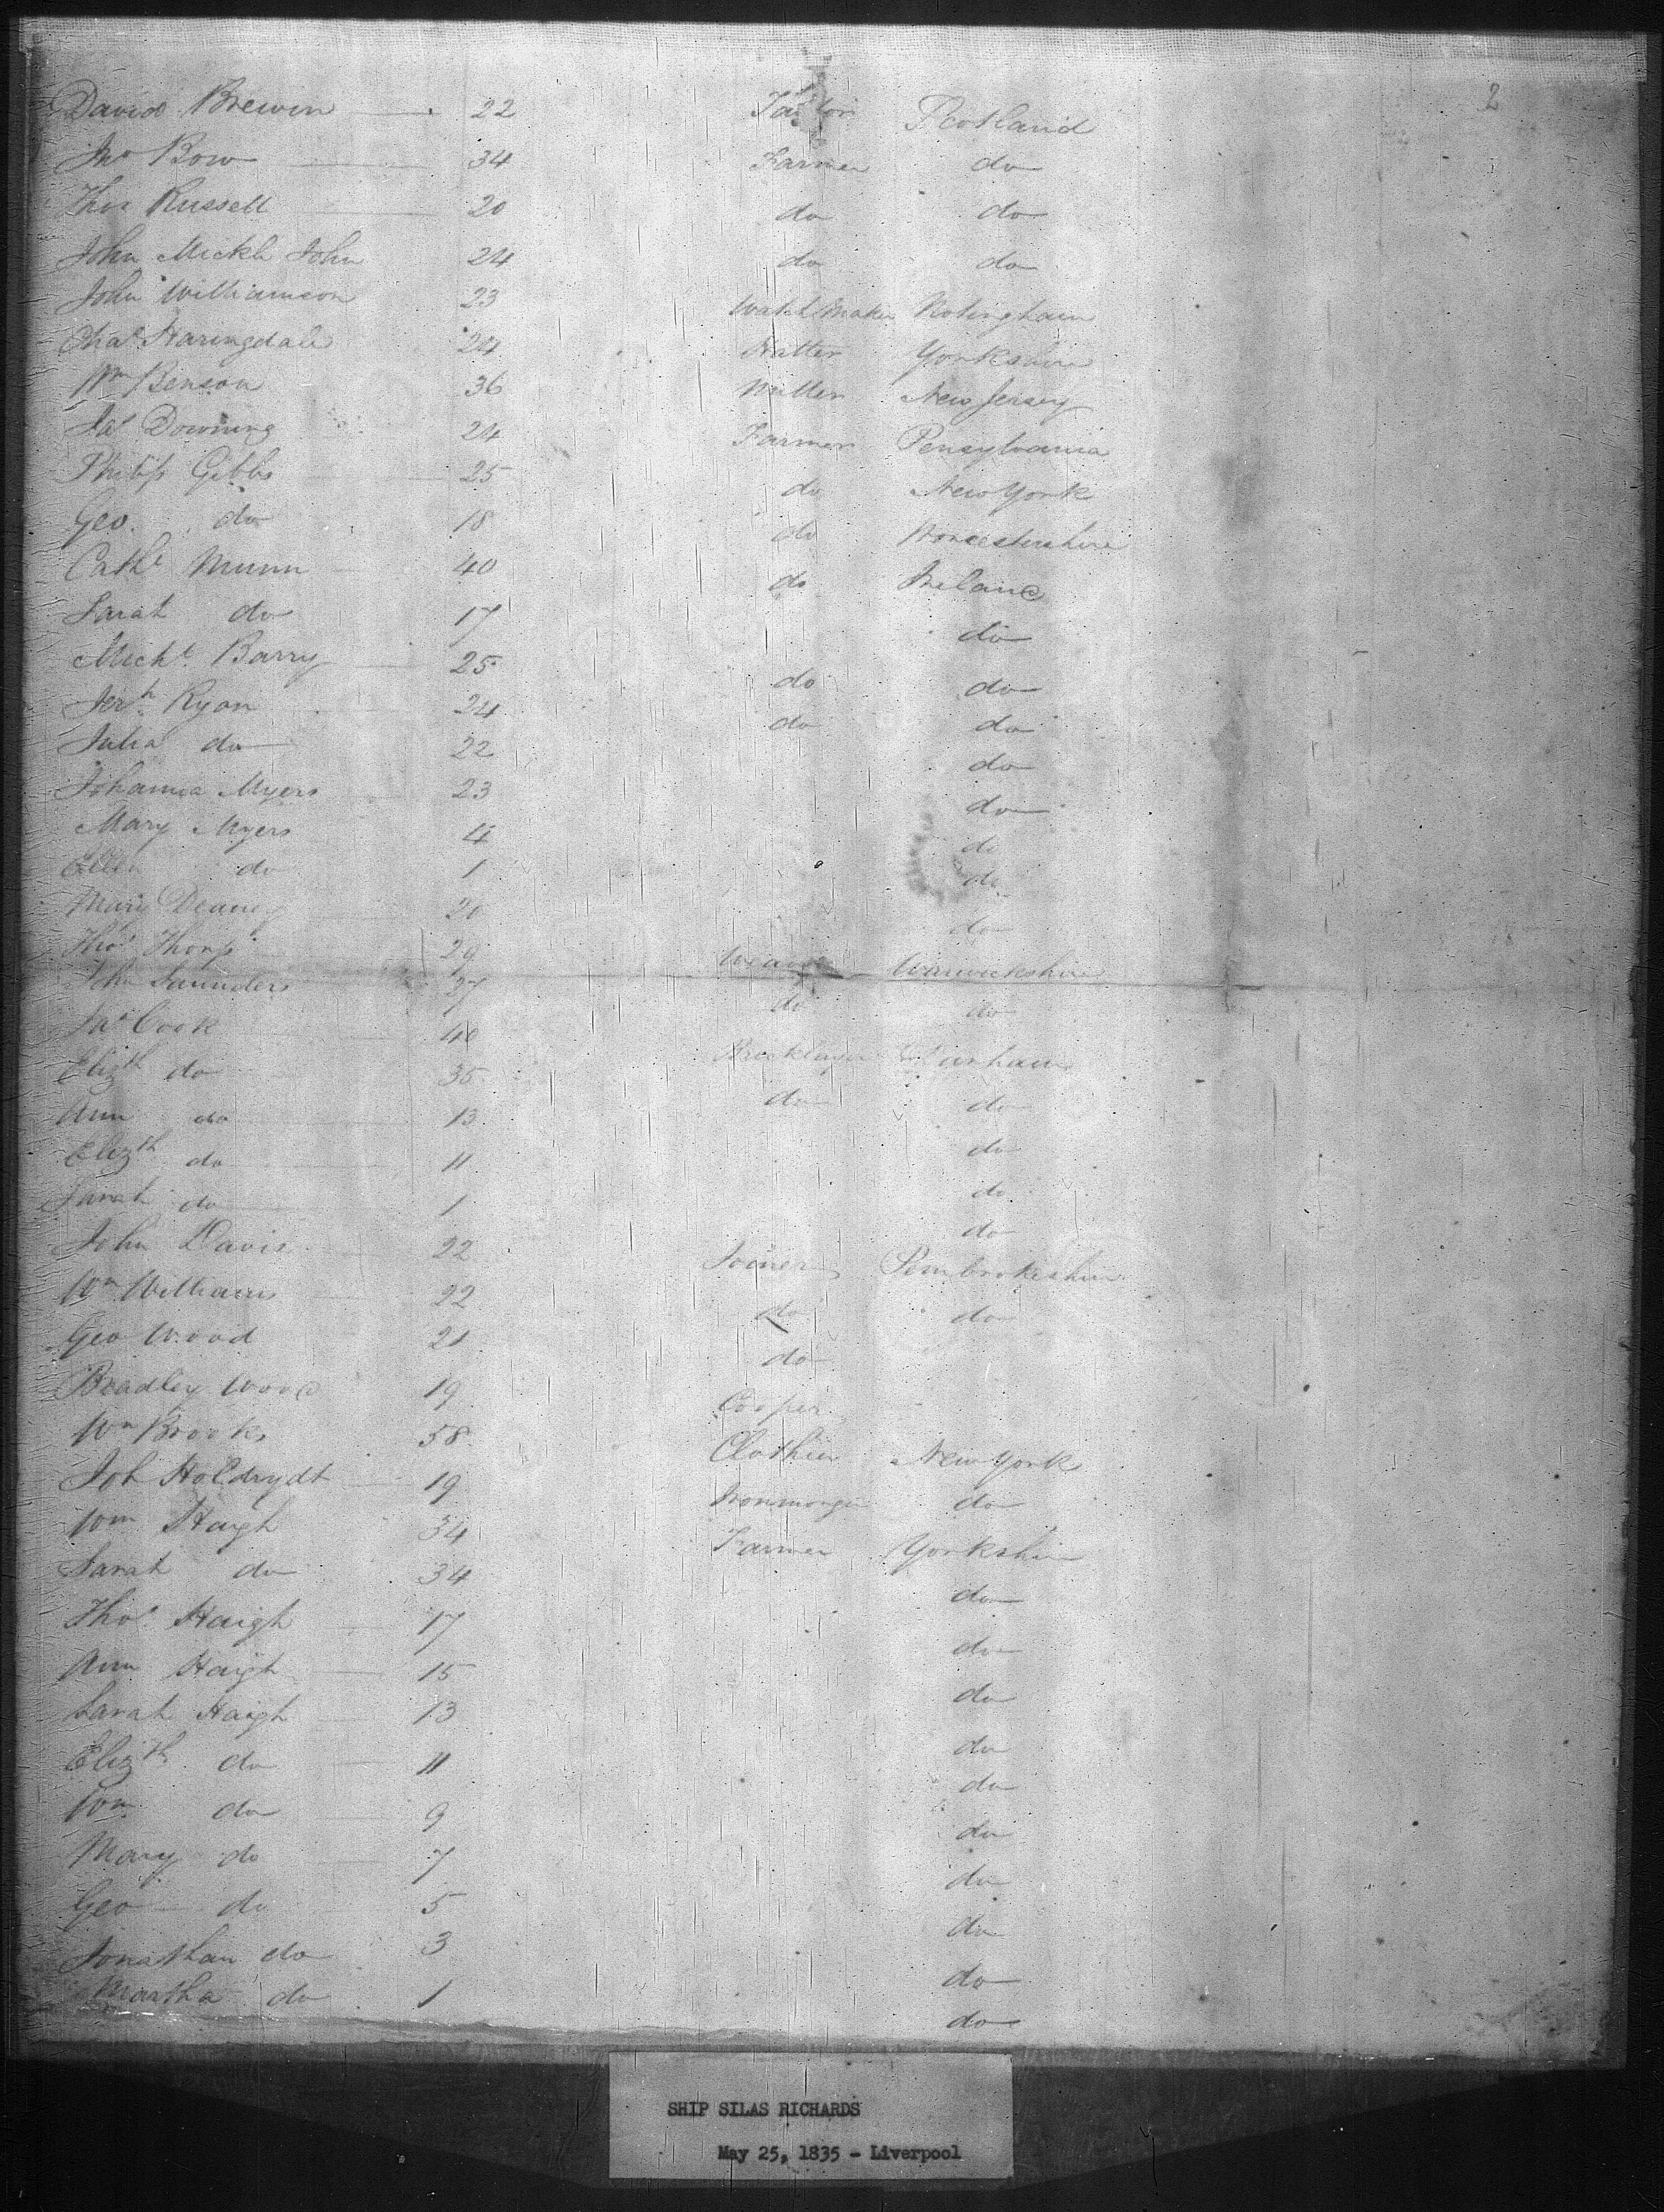 2
David Brewin 22 Tailor Scotland
Jno Bow 34 Farmer do
Thos Russell 20 do do
John Mickle John 24 do do
John Williamson 23 Watch Maker Notingham
Chas Haringdale 24 Hatter Yorkshire
Wm Benson 36 Miller New Jersey
Jas Downing 24 Farmer Pensylvania
Philip Gibbs 25 do New York
Geo. do 18 do Worcestershire
Cathe Munn 40 do Ireland
Sarah do 17 do
Michl Barry 25 do do
Jerh Ryan 24 do do
Julia do 22 do
Johanna Myers 23 do
Mary Myers 4 do
Ellen do 1 do
Mary Deaney 20 do
Thos Thorp 29 Weaver Warwickshire
John Saunders 27 do do
Jas Cook 40 Bricklayer Durham
Elizth do 35 do do
Ann do 13 do
Elizth do 11 do
Sarah do 1 do
John Davis 22 Joiner Pembrokeshire
Wm Williams 22 do do
Geo Wood 21 do
Bradley Wood 19 Cooper
Wm Brooks 58 Clothier New York
Joh 19 Ironmonger do
Wm Haigh 34 Farmer Yorkshire
Sarah do 34 do
Thos Haigh 17 do
Ann Haigh 15 do
Sarah Haigh 13 do
Elizth do 11 do
Wm do 9 do
Mary do 7 do
Geo do 5 do
Jonathan do 3 do
Martha do 1 do
SHIP SILAS RICHARDS
May 25, 1835 - Liverpool